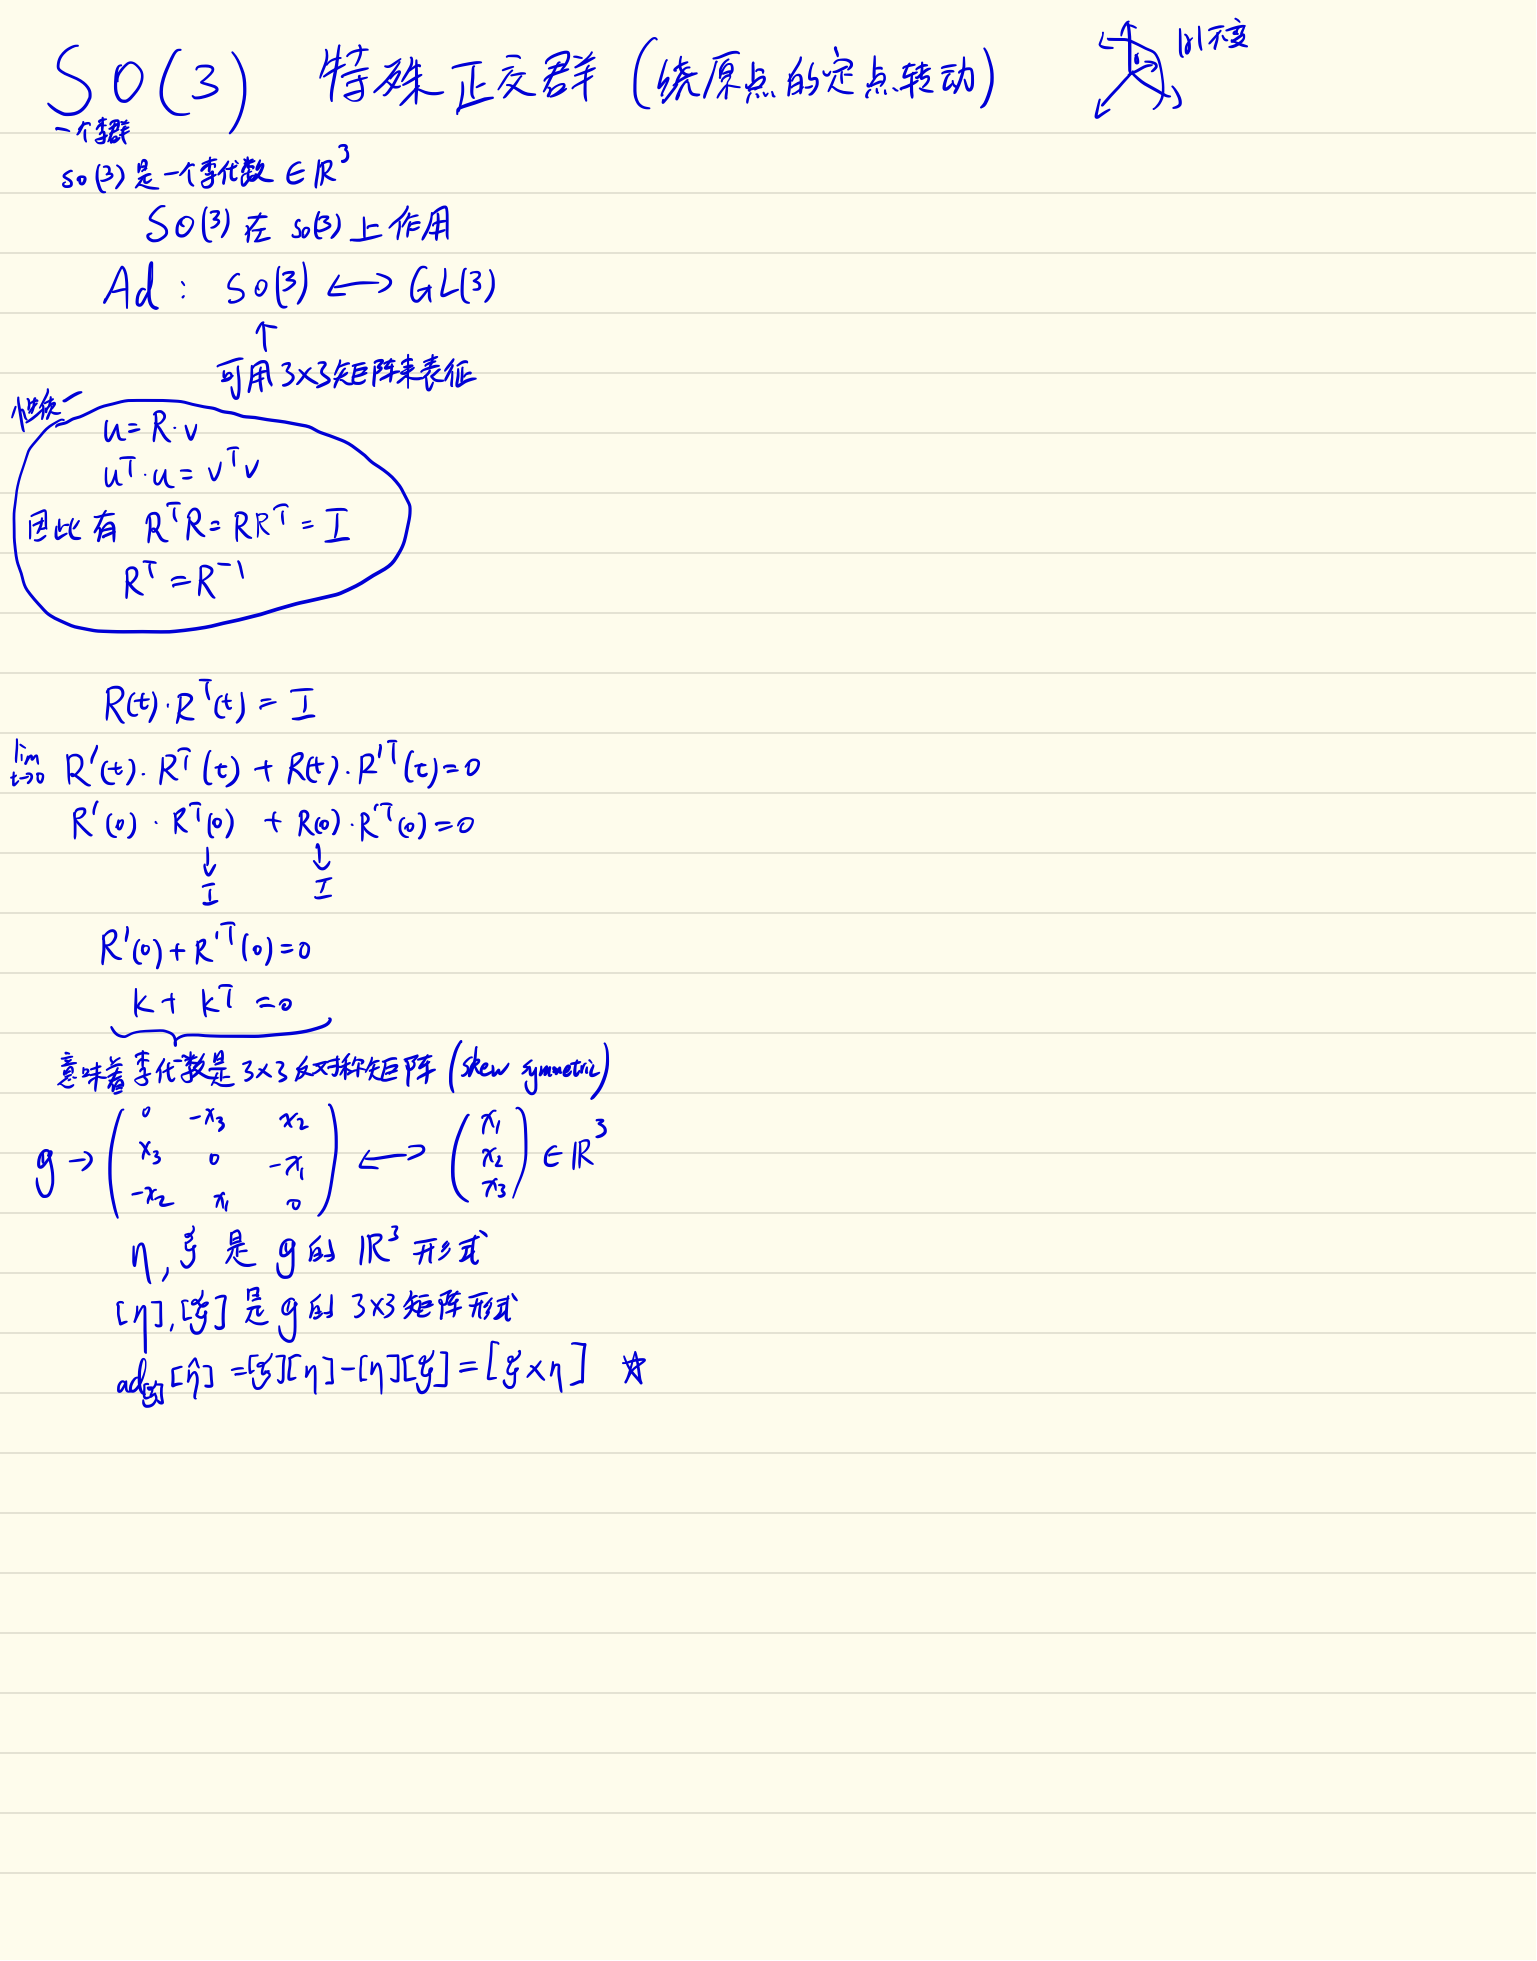 SO(3) 特殊正交群 (绕原点的定点转动)
|r|不变
一个李群
so(3)是一个李代数 ∈ℝ³
SO(3) 在 so(3) 上作用
Ad : SO(3) ⟷ GL(3)
↑
可用3×3矩阵来表征
性质一
u=R·v
uᵀ·u=vᵀv
因此有 RᵀR=RRᵀ=I
Rᵀ=R⁻¹
R(t)·Rᵀ(t)=I
lim t→0 R′(t)·Rᵀ(t)+R(t)·R′ᵀ(t)=0
R′(0)·Rᵀ(0) +R(0)·R′ᵀ(0)=0
↓ ↓
I I
R′(0)+R′ᵀ(0)=0
K+Kᵀ=0
意味着李代数是3×3反对称矩阵(skew symmetric)
0 -x₃ x₂ x₁
g→ x₃ 0 -x₁ ⟷ x₂ ∈ℝ³
-x₂ x₁ 0 x₃
η,ξ是g的ℝ³形式
[η],[ξ]是g的3×3矩阵形式
ad[ξ][η̂]=[ξ][η]-[η][ξ]=[ξ×η] ☆